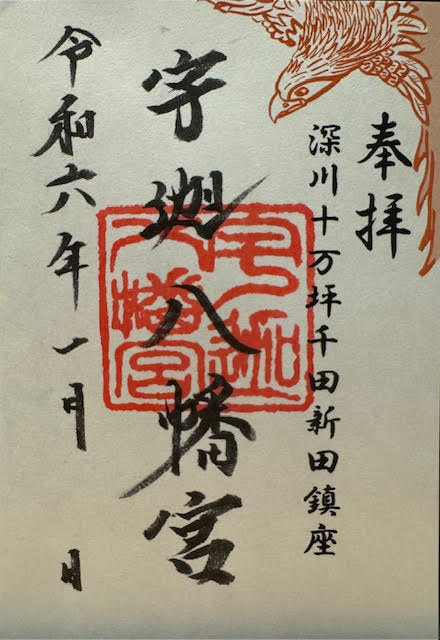 奉拝
深川十万坪千田新田鎮座
宇迦八幡宮
宇迦
八幡宮
令和六年一月 日